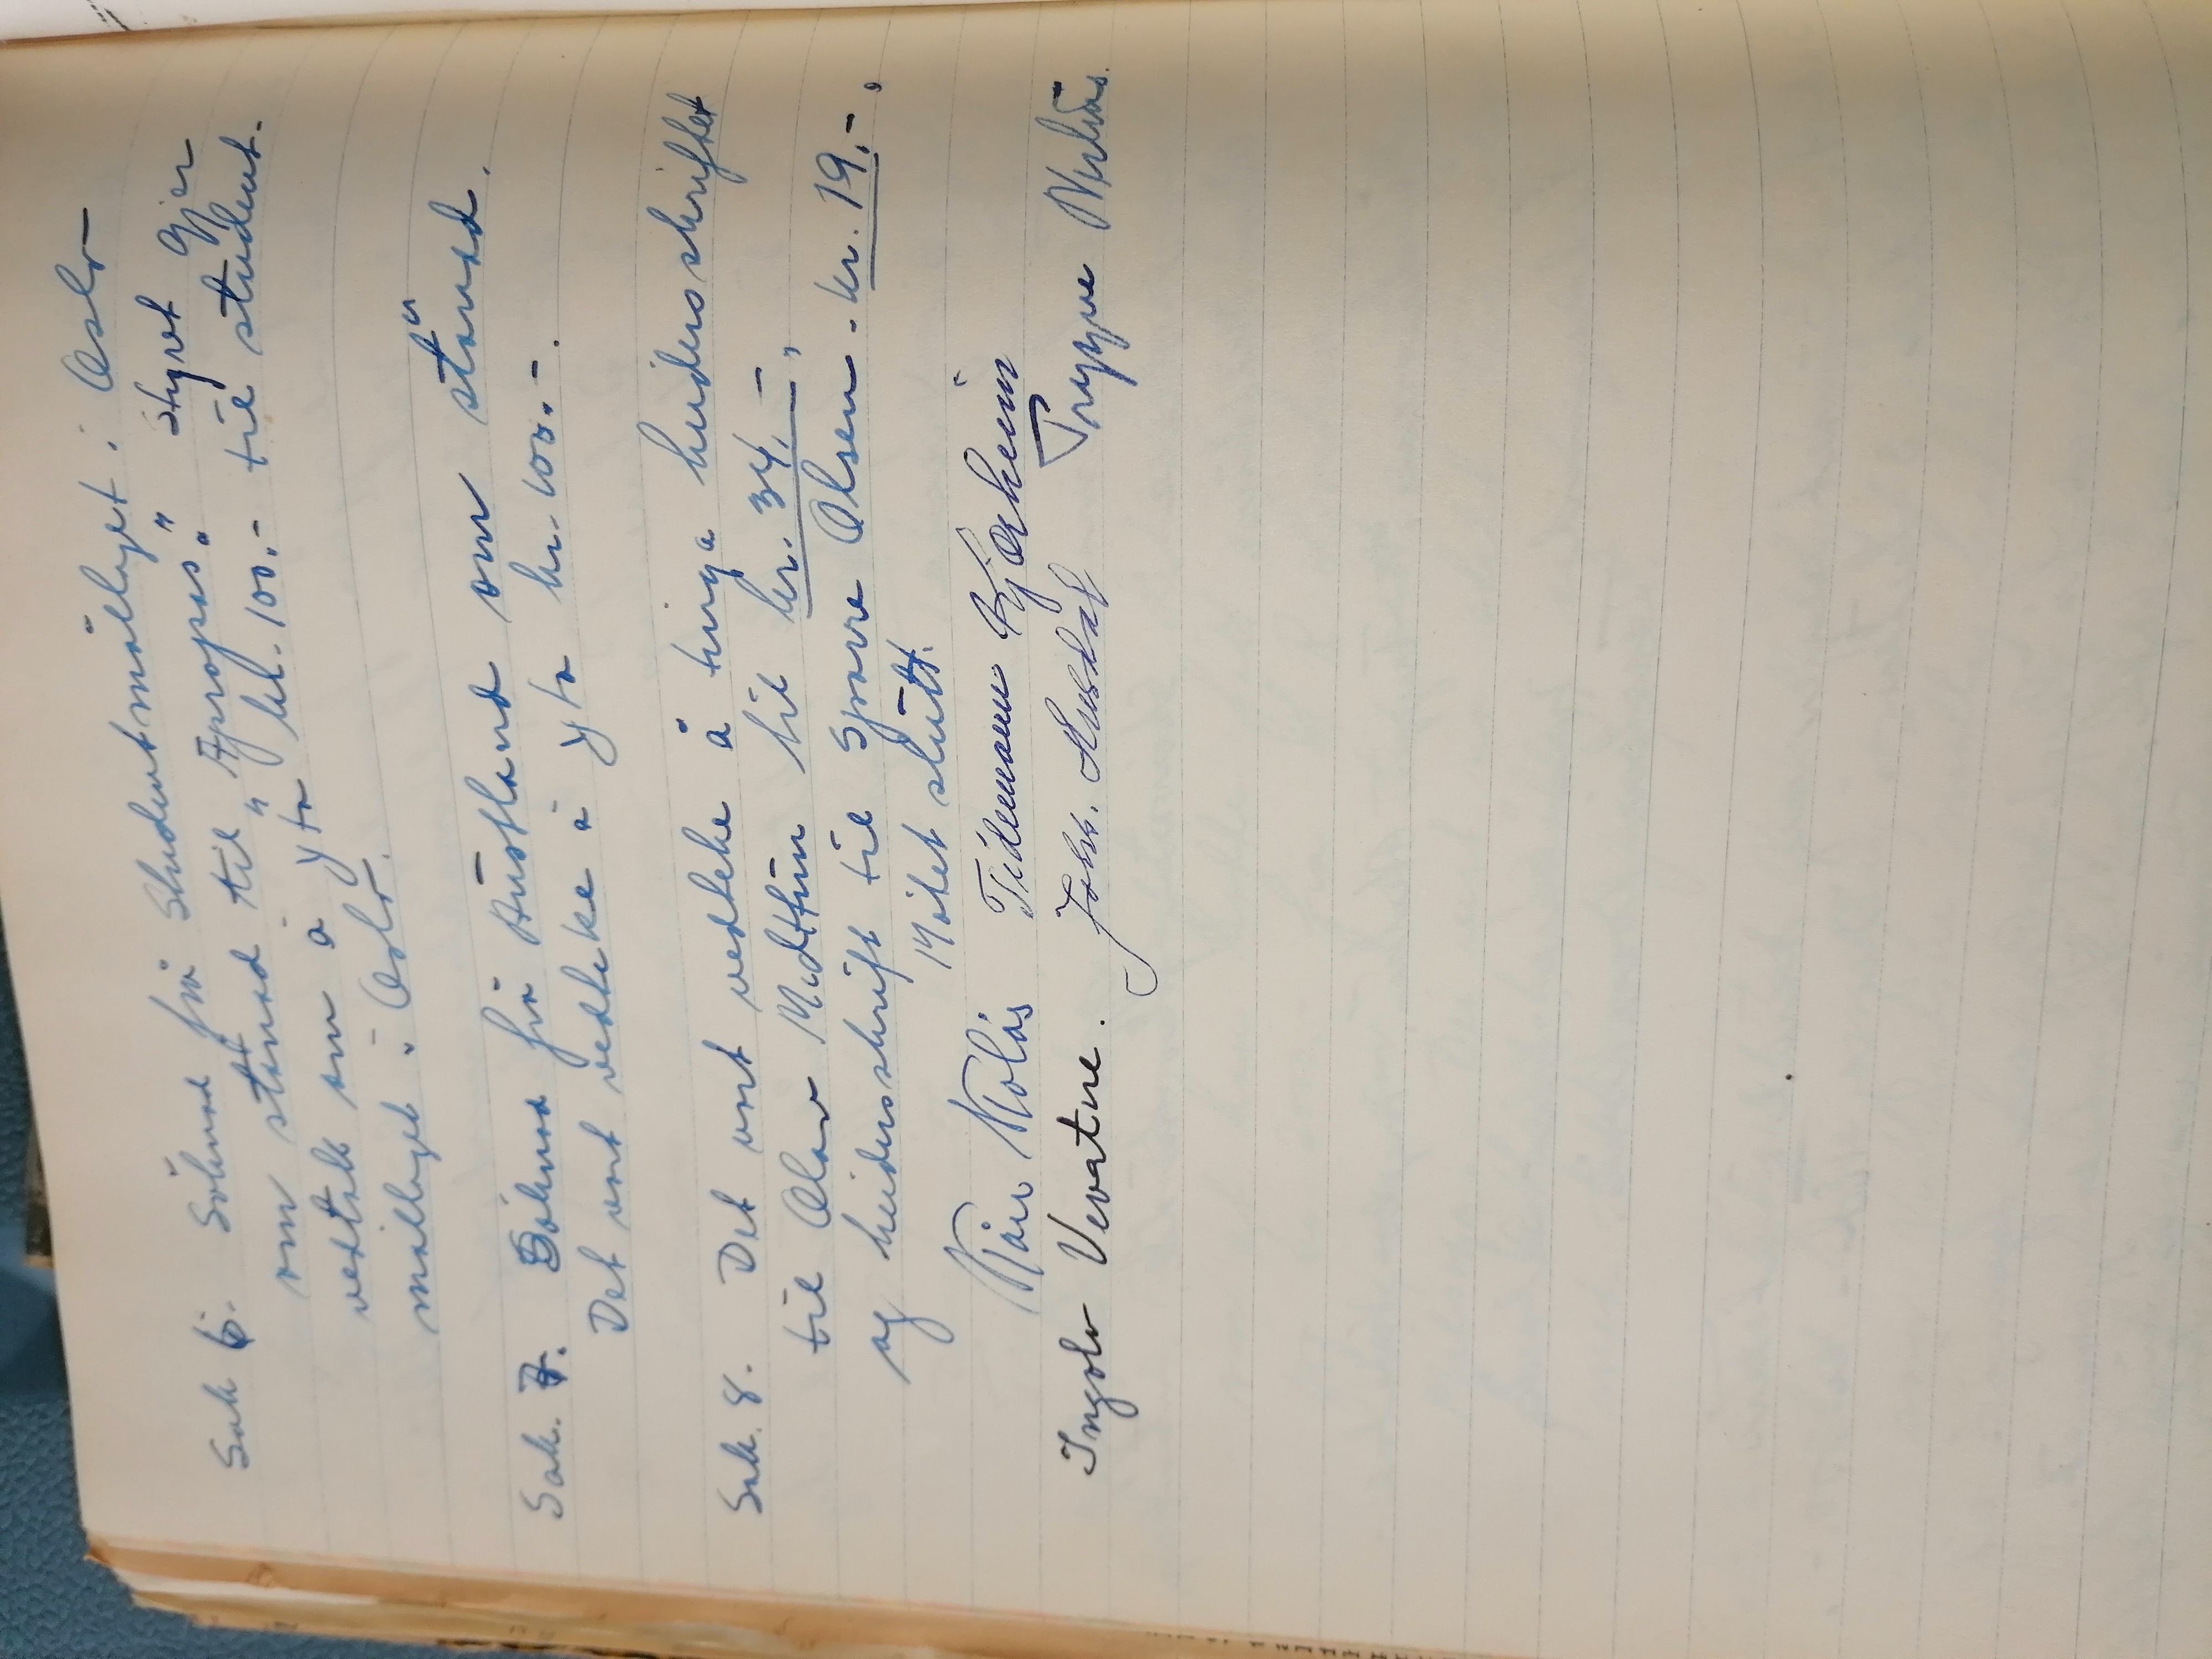 Sak 6. Söknad frå Studentmållaget i Oslo
om stönad til "Apropos". Styret gjer
vedtak om å yta kr. 100.- til student-
mållaget i Oslo.
Sak. 7. Söknad frå Austland om stönad.
Det vart vedteke å yta kr. 100.-.
Sak 8. Det vart vedteke å tinga heidersskriftet
til Olav Midttun til kr. 34,-,
og heidersskrift til Sparre Olsen. kr. 19,-,
Mötet slutt.
Kåre Flolås Tidemann Kjærheim
Ingolv Vevatne. Johs. Trygve